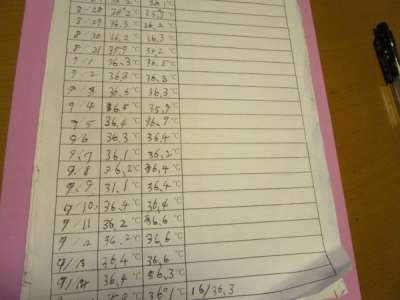 8/28 36.2℃ 35.9℃
8/29 36.3℃ 36.2℃
8/30 36.2℃ 36.3℃
8/31 35.9℃ 36.2℃
9/1 36.3℃ 36.5℃
9/2 36.3℃ 36.3℃
9/3 36.6℃ 36.3℃
9/4 36.5℃ 35.9℃
9/5 36.4℃ 36.7℃
9/6 36.3℃ 36.4℃
9/7 36.1℃ 36.2℃
9/8 36.2℃ 36.4℃
9/9 31.1℃ 36.4℃
9/10 36.4℃ 36.4℃
9/11 36.2℃ 36.6℃
9/12 36.2℃ 36.6℃
9/13 36.4℃ 36.6℃
9/14 36.4℃ 36.3℃
36.1℃ 16/36.3